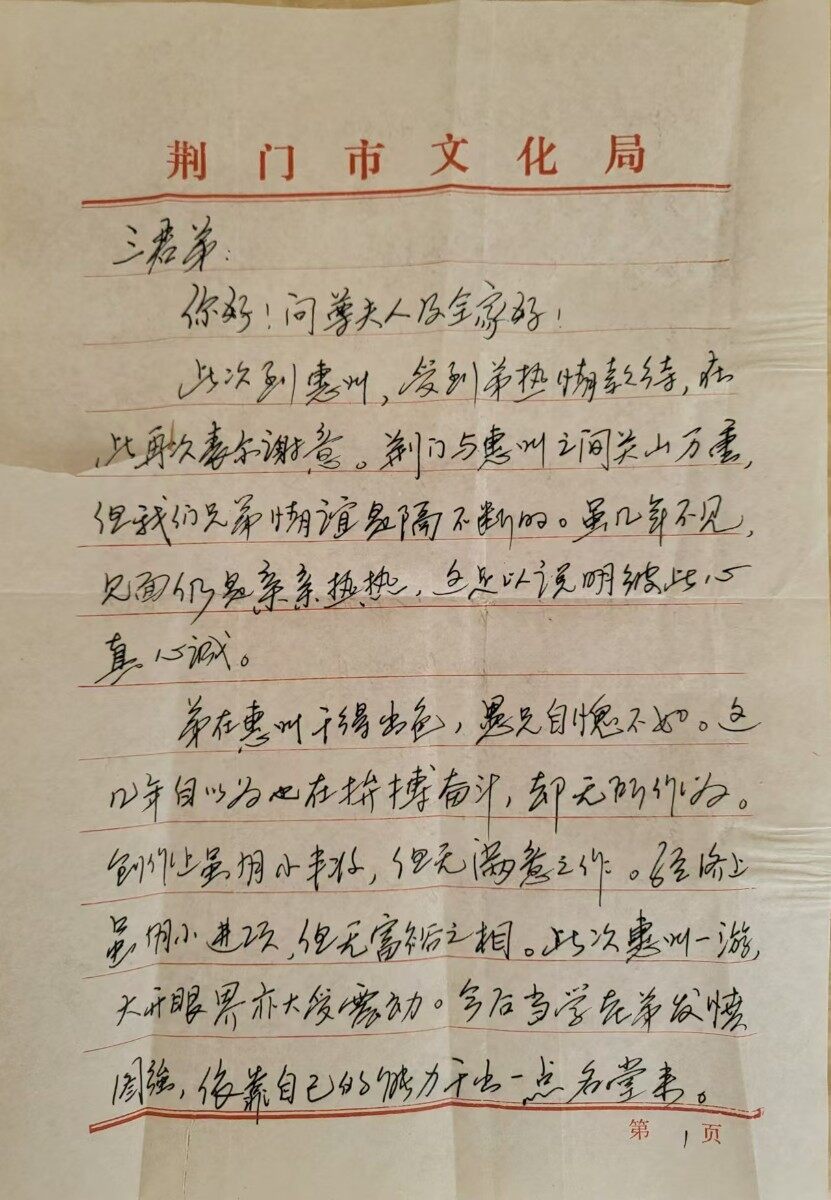 荆门市文化局
三君弟：
你好！问尊夫人及全家好！
此次到惠州，受到弟热情款待，在
此再次表示谢意。荆门与惠州之间关山万重，
但我们兄弟情谊是隔不断的。虽几年不见，
见面仍是亲亲热热，这足以说明彼此心
真心诚。
弟在惠州干得出色，愚兄自愧不如。这
几年自以为也在拚搏奋斗，却无所作为。
创作上虽有小丰收，但无满意之作。经济上
虽有小进项，但无富裕之相。此次惠州一游，
大开眼界亦大受震动。今后当学老弟发愤
图强，依靠自己的能力干出一点名堂来。
第1页